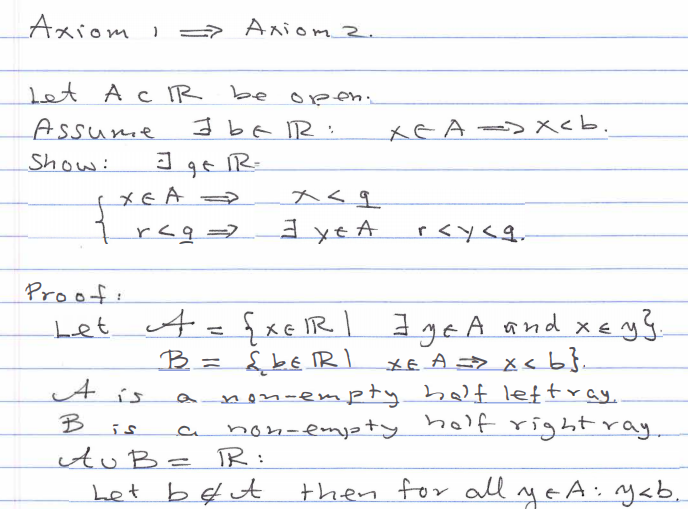 Axiom 1 ⟹ Axiom 2.
Let A ⊂ ℝ be open.
Assume ∃ b ∈ ℝ : x ∈ A ⟹ x < b.
Show: ∃ q ∈ ℝ :
{ x ∈ A ⟹ x < q
r < q ⟹ ∃ y ∈ A r < y < q.
Proof:
Let 𝒜 = {x ∈ ℝ | ∃ y ∈ A and x ≤ y}.
B = {b ∈ ℝ | x ∈ A ⟹ x < b}.
𝒜 is a non-empty half left ray.
B is a non-empty half right ray.
𝒜 ∪ B = ℝ :
Let b ∉ 𝒜 then for all y ∈ A : y < b.